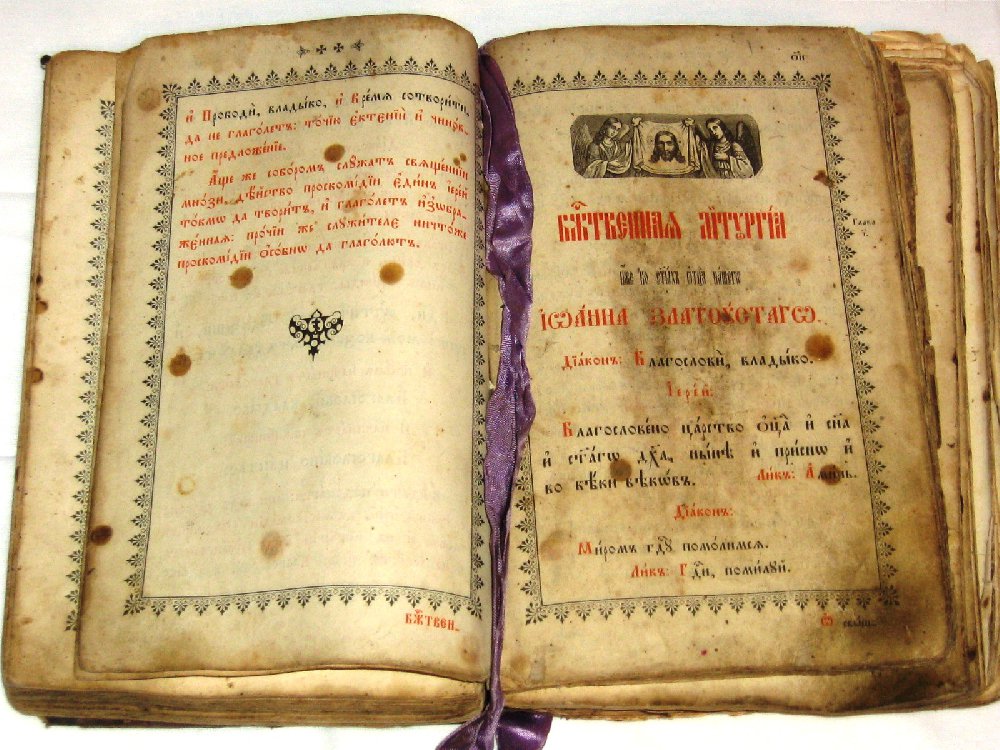 и҆ Проводи́, влады́ко, и҆ Вре́мѧ сотвори́ти,
да не глаго́летъ: то́чїю є҆ктенїи̑ и҆ чино́в_
ное предложе́нїе.
А҆́ще же собо́ромъ слꙋ́жатъ сщ҃е́нницы
мно́зи, дѣ́йство проскомі́дїи є҆ди́нъ і҆ере́й
то́кмѡ да твори́тъ, и҆ глаго́летъ и҆зѡбра_
же́ннаѧ: про́чїи же слꙋжи́телє ничто́же
проскомі́дїи ѻ҆со́бнѡ да глаго́лютъ.
БЖ҃ТВЕН_
ѻ҃и
БЖ҃ТВЕННАѦ ЛИТꙊРГІ́А
и҆́же во ст҃ы́хъ ѻ҆тца̀ на́шегѡ
І҆ѠА́ННА ЗЛАТОꙊ́СТАГѠ.
Глава̀
Дїа́конъ: Благословѝ, влады́ко.
І҆ере́й:
Благослове́но ца́рство ѻ҆ц҃а̀ и҆ сн҃а
и҆ ст҃а́гѡ дх҃а, ны́нѣ и҆ при́снѡ и҆
во вѣ́ки вѣкѡ́въ. Ли́къ: А҆ми́нь.
Дїа́конъ:
Ми́ромъ гдⷭ҇ꙋ помо́лимсѧ.
Ли́къ: Гдⷭ҇и, поми́лꙋй.